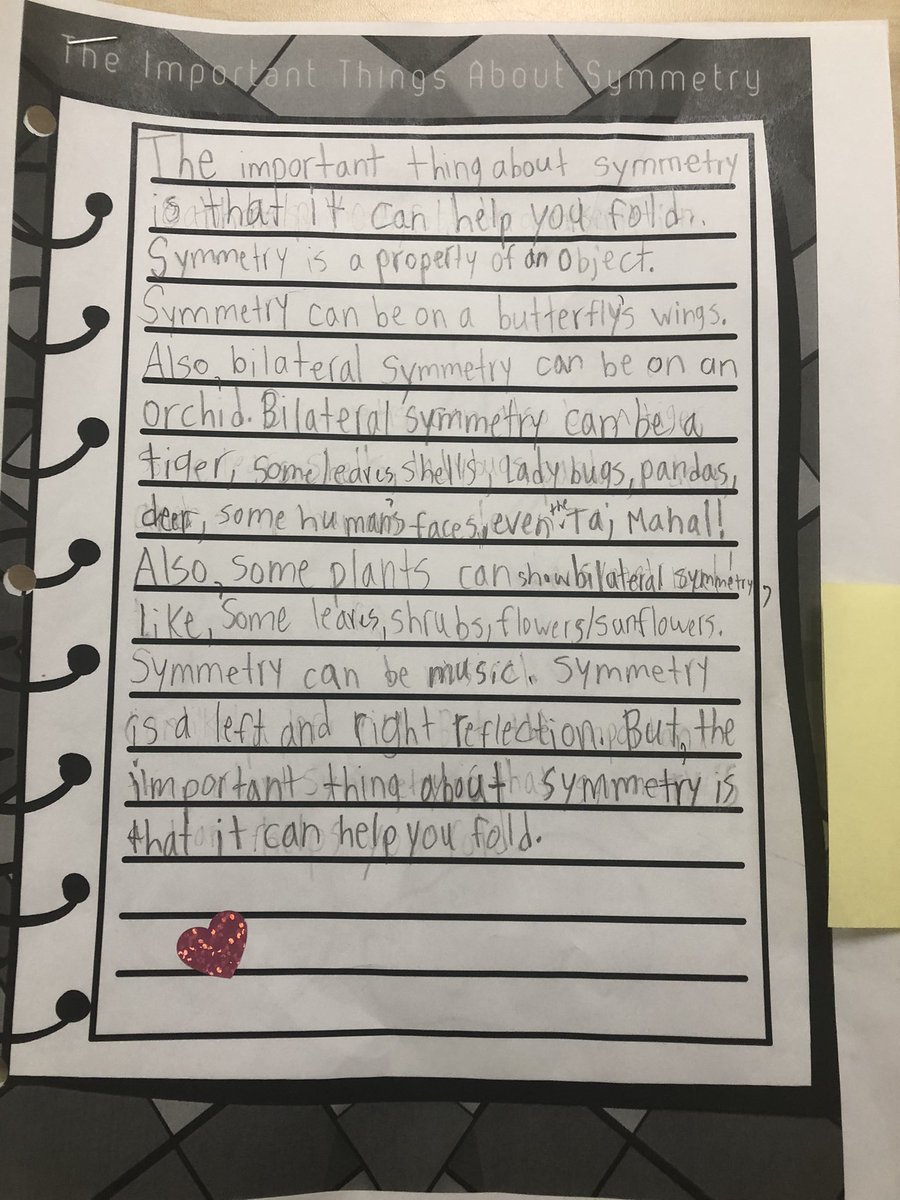 The Important Things About Symmetry
The important thing about symmetry
is that it can help you fold.
Symmetry is a property of an object.
Symmetry can be on a butterfly's wings.
Also, bilateral symmetry can be on an
orchid. Bilateral symmetry can be a
tiger, some leaves, shells, lady bugs, pandas,
deer, some human's faces, even the Taj Mahal!
Also, some plants can show bilateral symmetry,
like, some leaves, shrubs, flowers/sunflowers.
Symmetry can be music. Symmetry
is a left and right reflection. But, the
important thing about symmetry is
that it can help you fold.